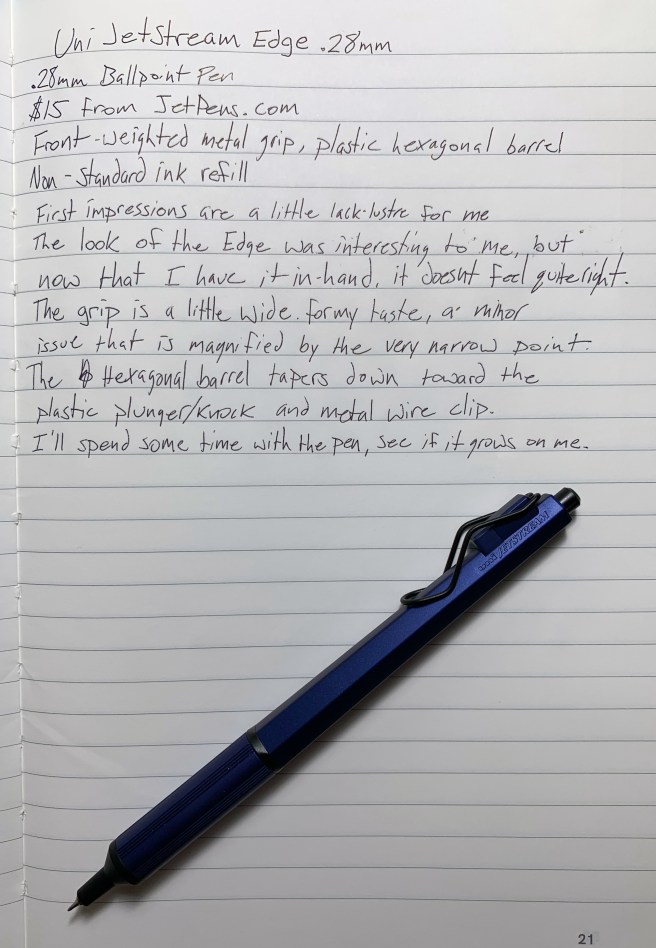 Uni JetStream Edge .28mm
.28mm Ballpoint Pen
$15 from JetPens.com
Front-weighted metal grip, plastic hexagonal barrel
Non-Standard ink refill
First impressions are a little lack-lustre for me
The look of the Edge was interesting to me, but
now that I have it in-hand, it doesnt feel quite right.
The grip is a little wide for my taste, a minor
issue that is magnified by the very narrow point.
The Hexagonal barrel tapers down toward the
plastic plunger/knock and metal wire clip.
I'll spend some time with the pen, see if it grows on me.
JETSTREAM
21